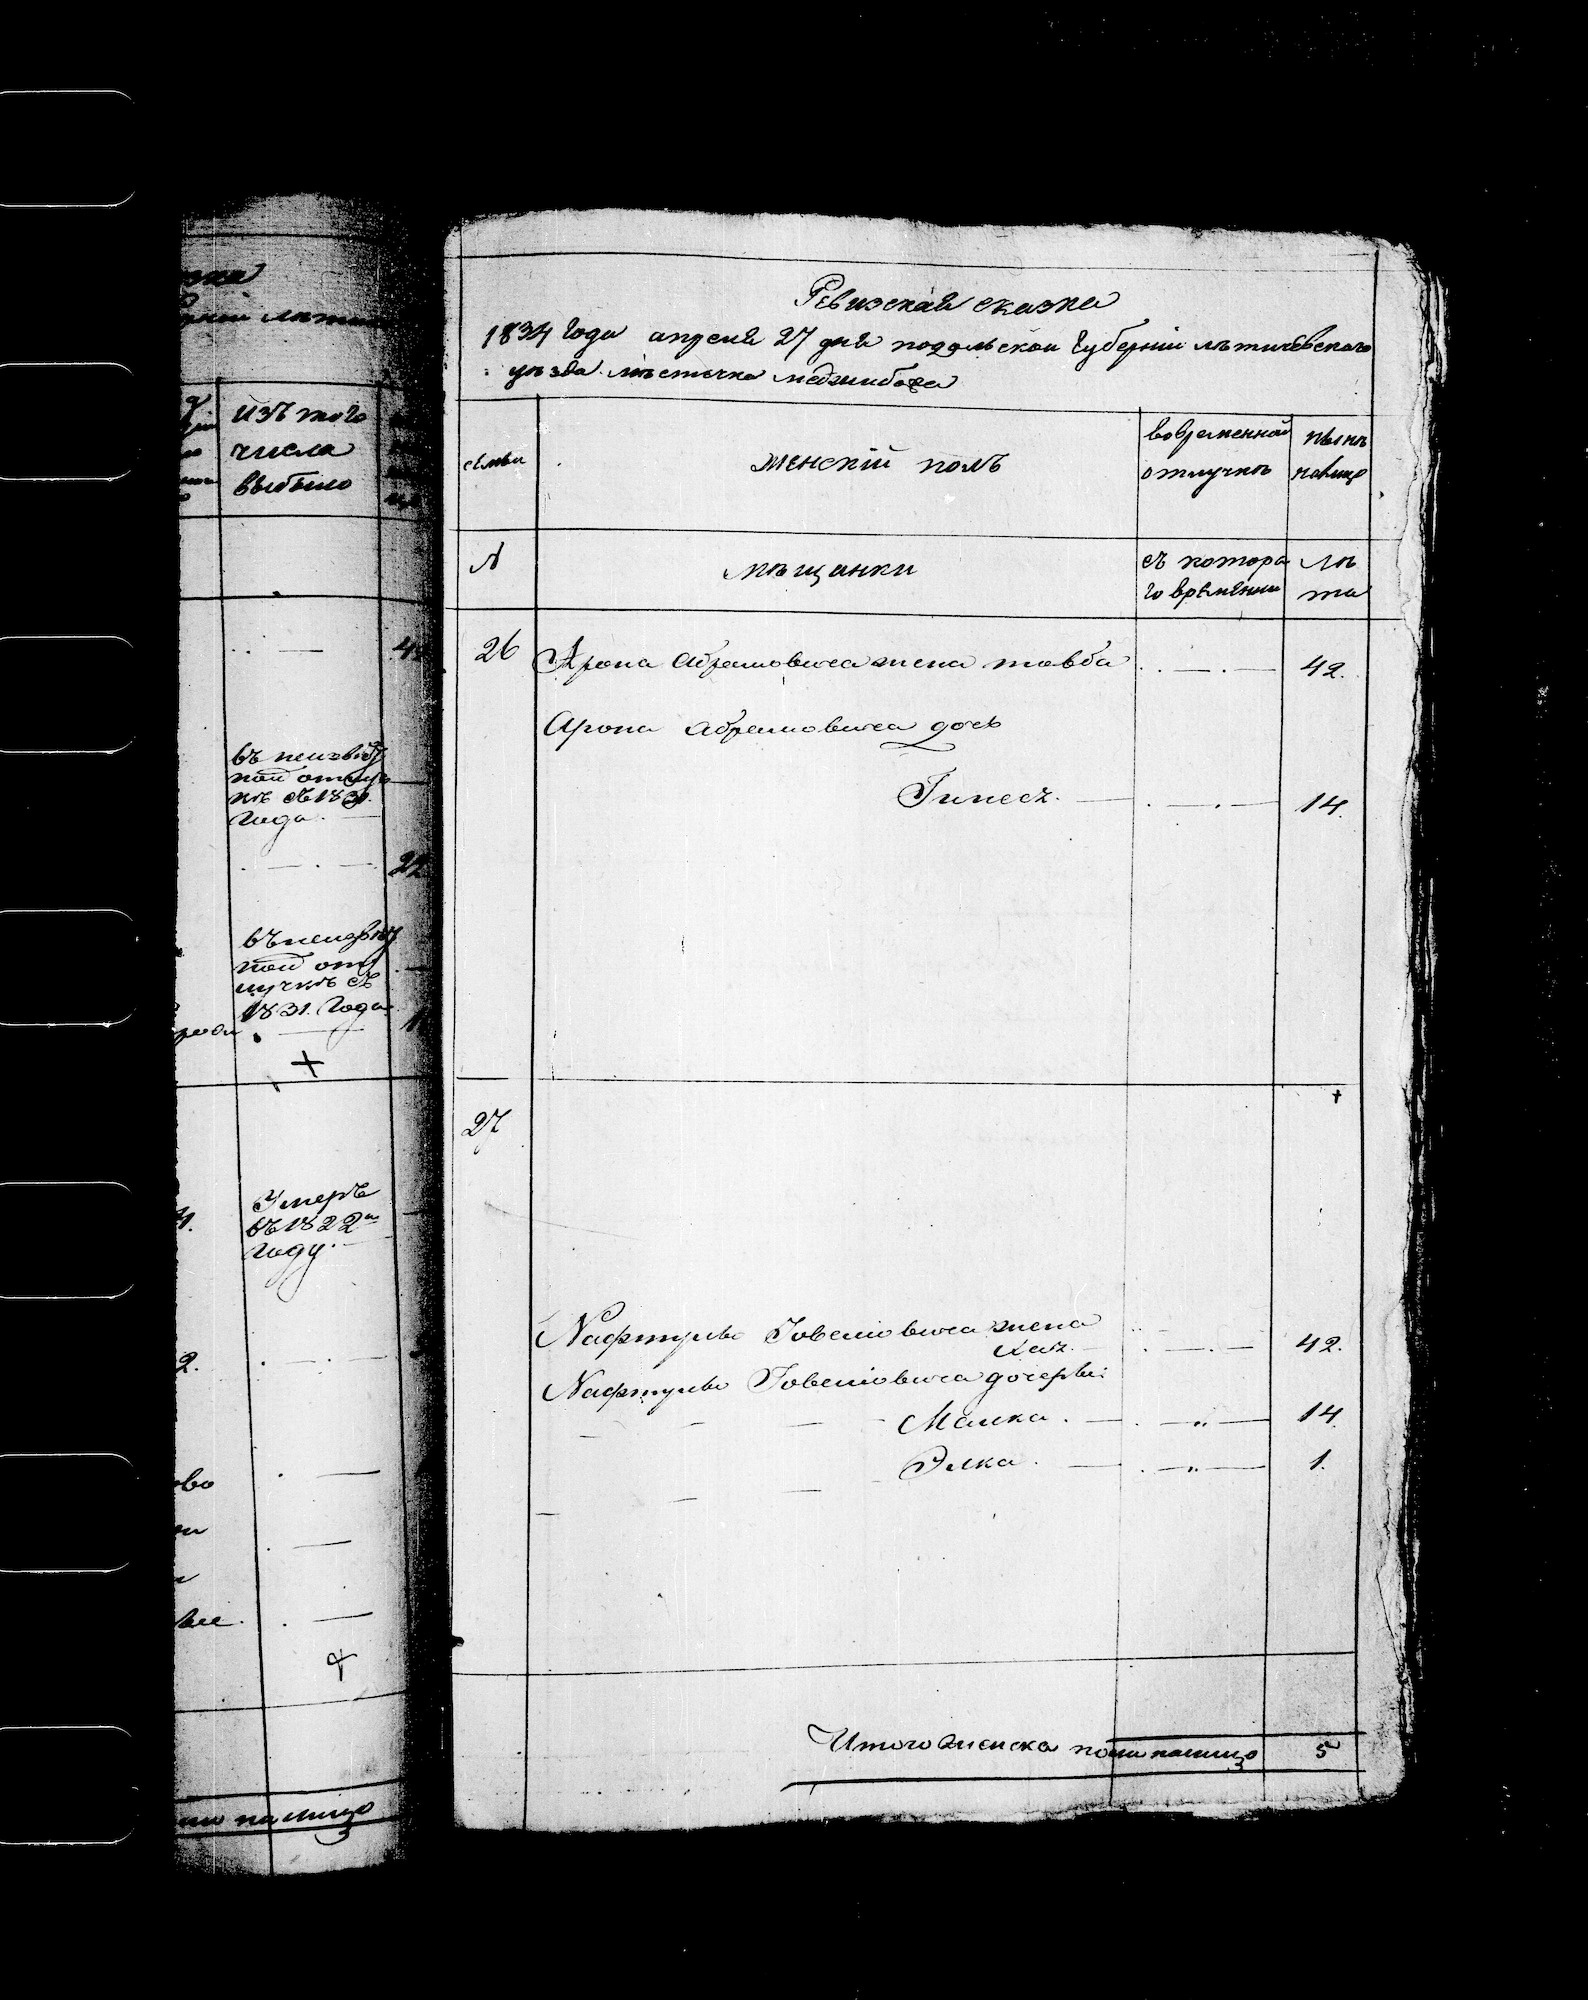 изъ того
числа
выбыло
въ неизвѣст
ной отлуч
кѣ съ 1831.
года.
22
въ неизвѣст
ной отл
лучкѣ съ
1831. года
Умеръ
въ 1822 м
году.
2.
во
на лицо
Ревизская сказка
1834 года апреля 27 дня подольской губерніи летичевского
уѣзда мѣстечка меджибожа
семьи
женскій полъ
вовременной
отлучкѣ
нынѣ
налицо
№
мѣщанки
съ котора
го времяни
лѣ
та
26 Арона Абрамовича жена товба 42.
Арона Абрамовича дочь
14.
27
Нафтулы Іовелювича жена
Хая. 42.
Нафтулы Іовелювича дочеры:
Малка. 14.
Элка. 1.
Итого женска пола налицо 5